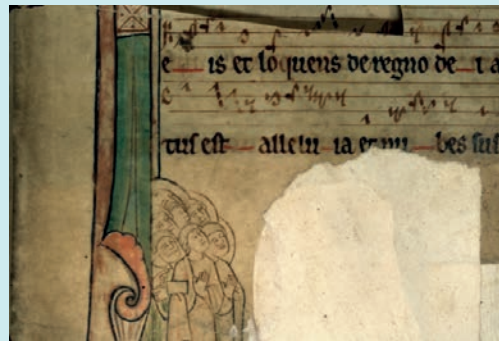 e is et loquens de regno de i a
tus est allelu ia et nu bes sus